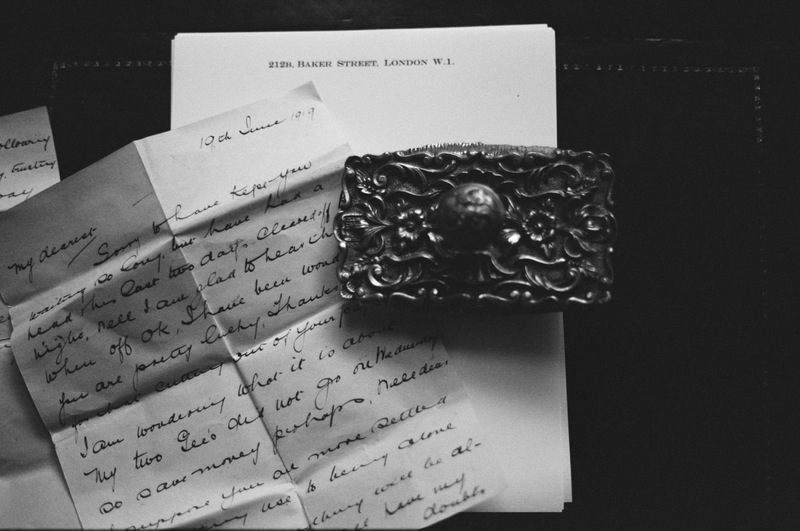 212B, BAKER STREET, LONDON W.1.
19th June 1919
My dearest
Sorry to have kept you
waiting so long, but have had a
head this last two days. Cleared off
night. Well I am glad to hear
when off OK. I have been
you are pretty lucky. Thanks
cutting out of your
I am wondering what it is about
My two Gee's did not go on Wednesday
so save money perhaps. Well dear
suppose you are more settled
use to being alone
will be al-
have my
doubts